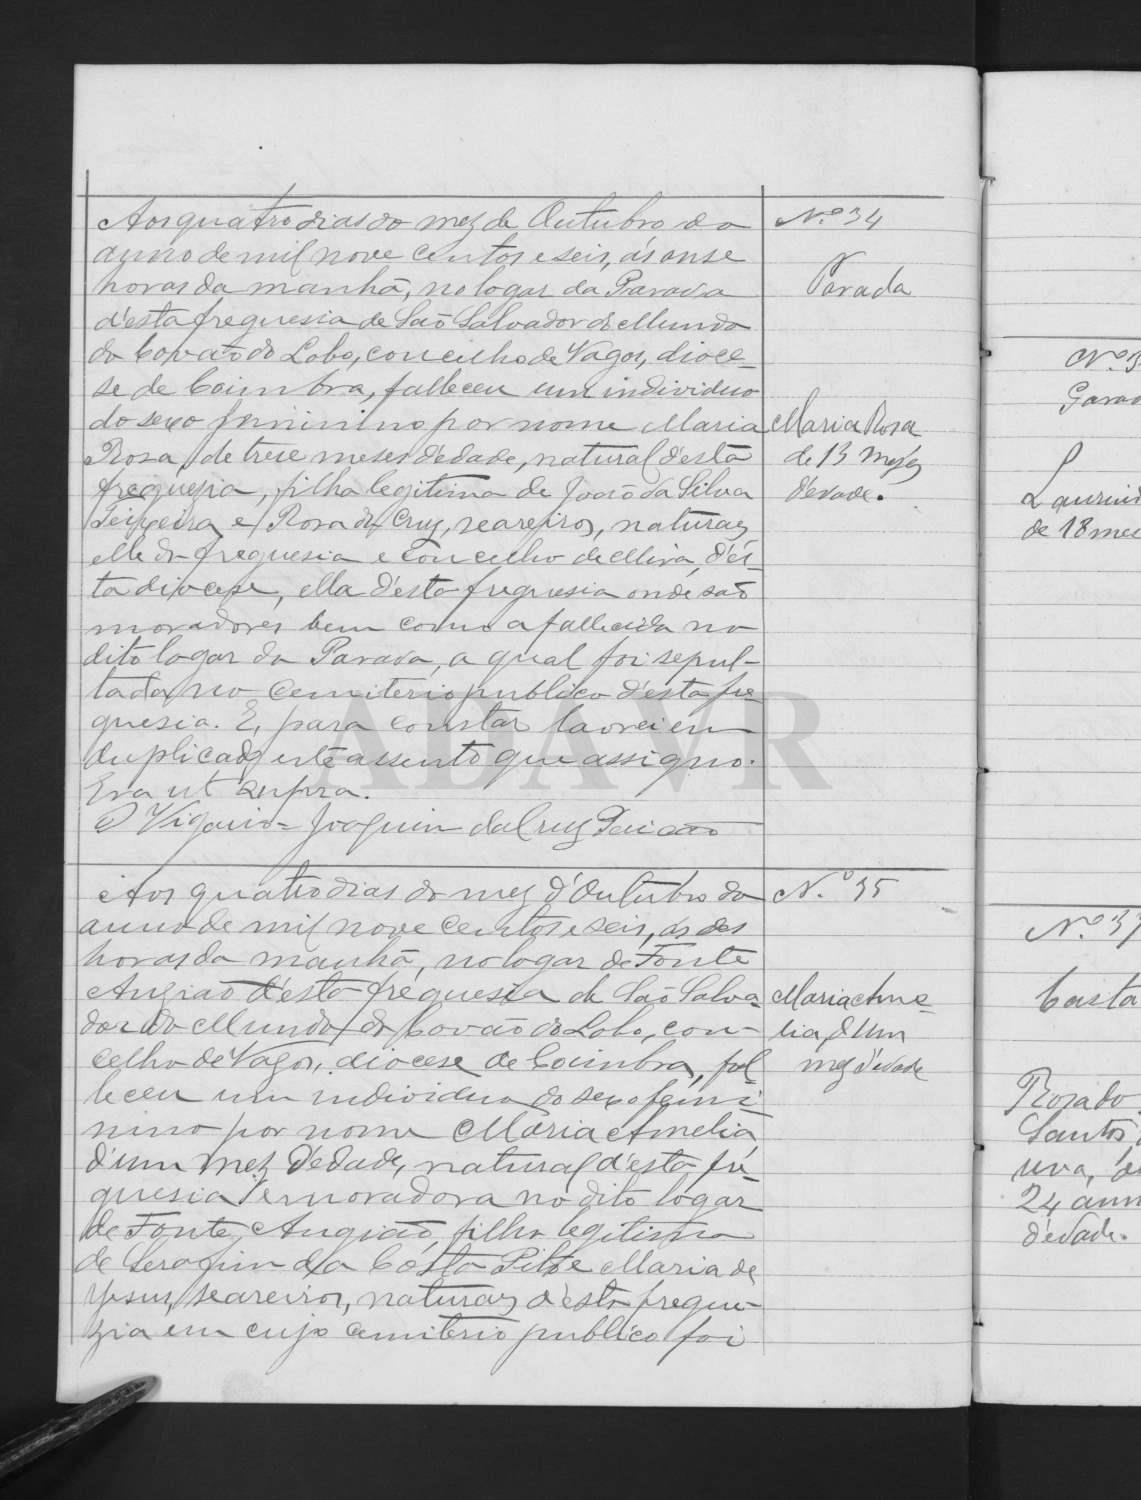 Aos quatro dias do mez de Outubro do
anno de mil nove centos e seis, ás onse
horas da manhã, no logar da Parada
d'esta freguesia de São Salvador do Mundo
do Covão do Lobo, concelho de Vagos, dioce-
se de Coimbra, falleceu um individuo
do sexo feminino por nome Maria
Rosa, de trese meses d'edade, natural d'esta
freguesia, filha legitima de João da Silva
Teixeira e Rosa da Cruz, seareiros, naturaes
elle da freguesia e concelho de Mira, d'es-
ta diocese, ella d'esta freguesia onde são
moradores bem como a fallecida no
dito logar da Parada, a qual foi sepul-
tada no cemiterio publico d'esta fre-
guesia. E, para constar lavrei em
duplicado este assento que assigno.
Era ut supra.
O Vigario = Joaquim da Cruz
N.º 34
Parada
Maria Rosa
de 13 meses
d'edade.
Aos quatro dias do mez d'Outubro do
anno de mil nove centos e seis, ás des
horas da manhã, no logar de Fonte
Angião d'esta freguesia de São Salva-
dor do Mundo do Covão do Lobo, con-
celho de Vagos, diocese de Coimbra, fal-
leceu um individuo do sexo femi-
nino por nome Maria Amelia
d'um mez d'edade, natural d'esta fre-
guesia e moradora no dito logar
de Fonte Angião, filha legitima
de Serafim da Costa e Maria de
Jesus, seareiros, naturaes d'esta fregue-
zia em cujo cemiterio publico foi
N.º 35
Maria Ame-
lia, d'um
mez d'edade
ADAVR
N.º 3
Parad
Laurind
de 18 mes
N.º 37
Casta
Rosa do
Santos
uva, de
24 ann
d'edade.